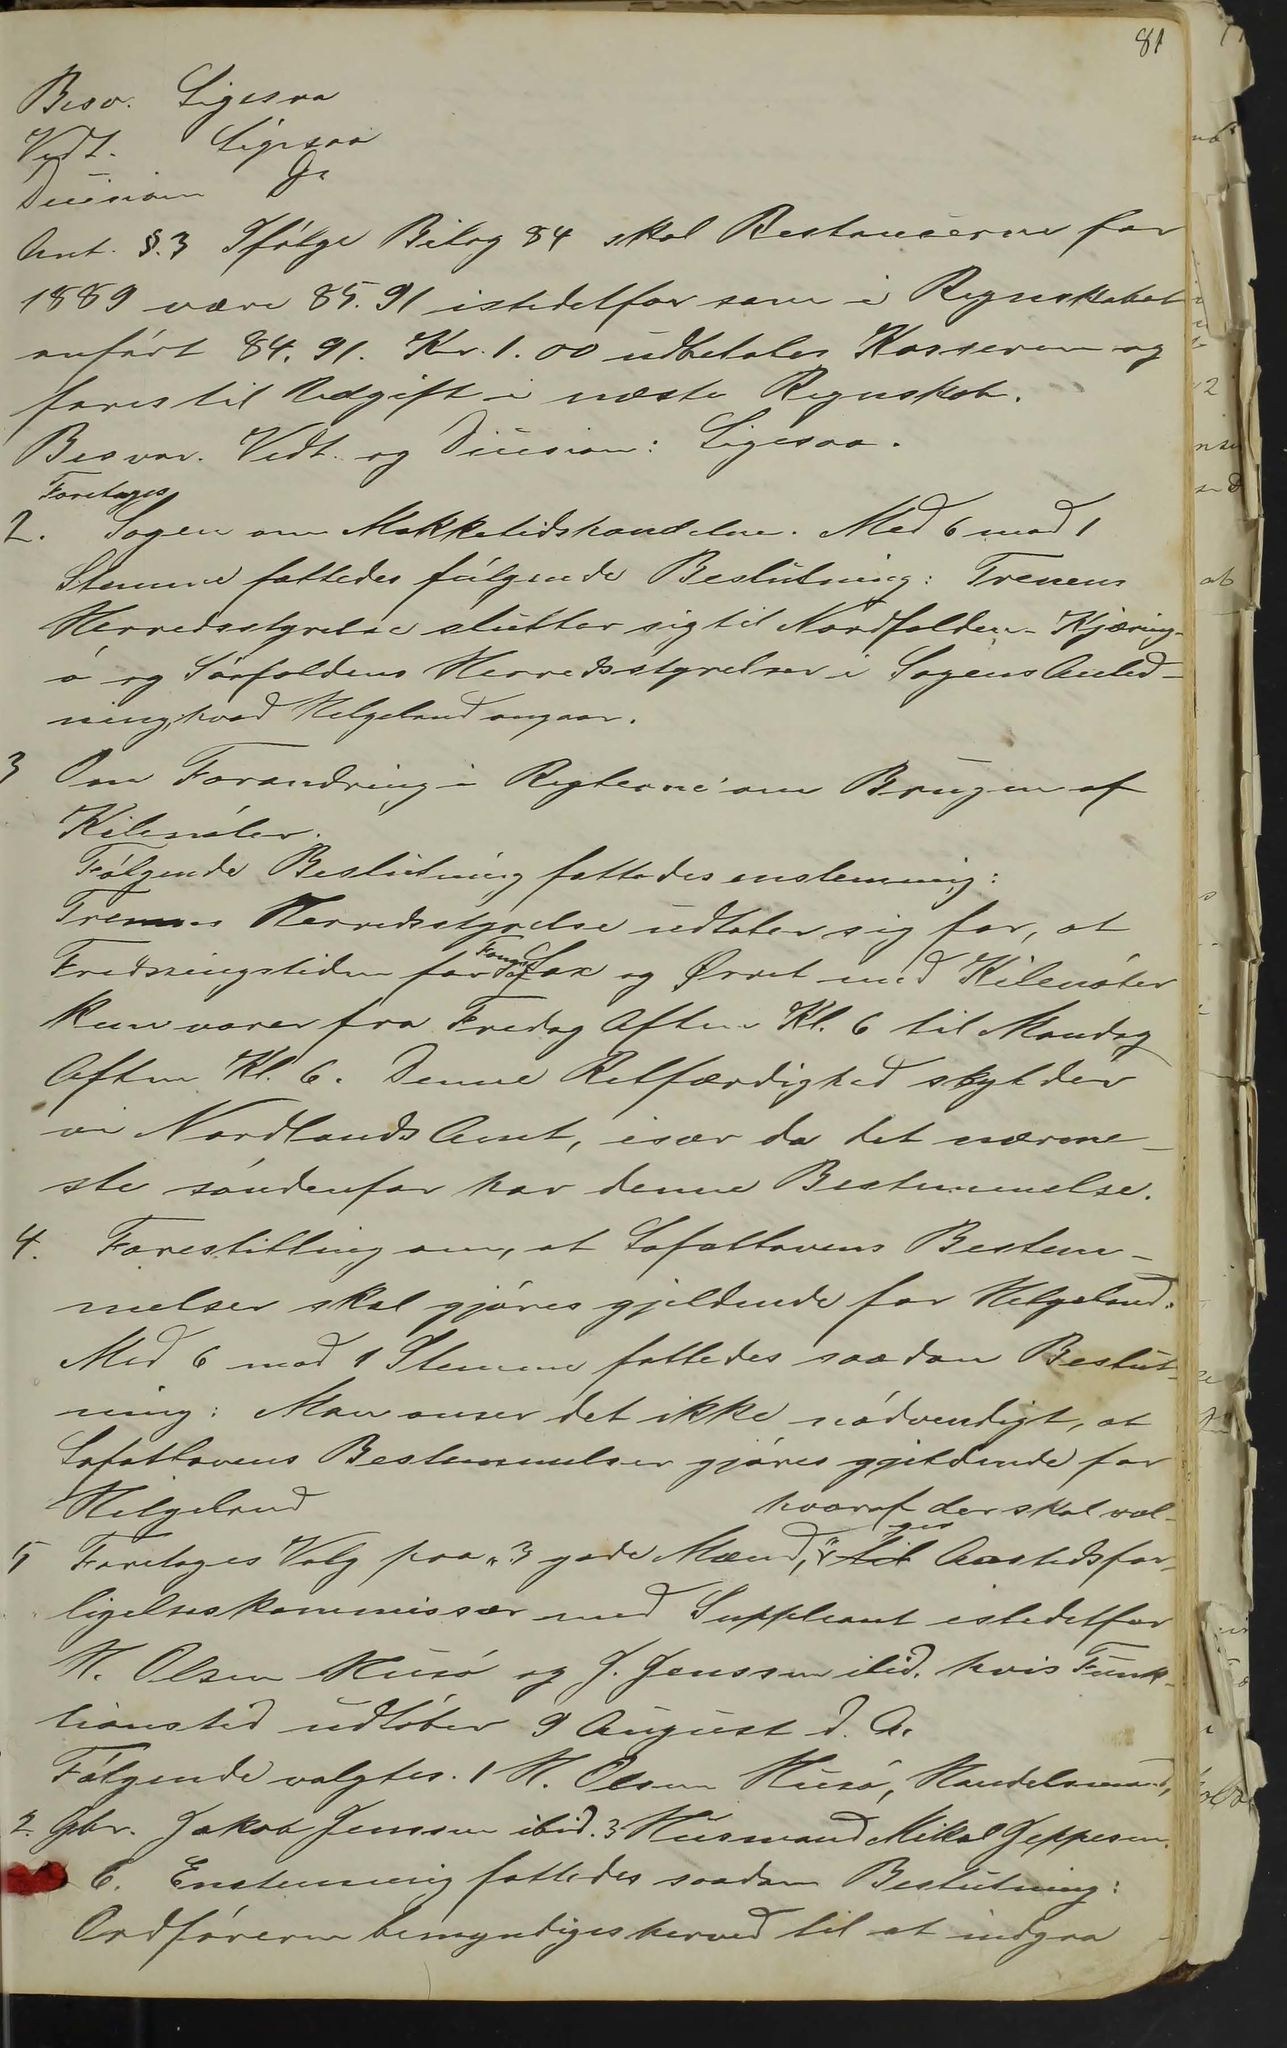 81
Besv. Ligesaa
Vedt. Ligesaa
Decision Do
Ant. §.3 Ifølge Bilag 84 skal Restancerne for
1889 være 85.91 istedetfor som i Regnskabet
anført 84.91. Kr. 1.00 udbetales Kasseren og
føres til Udgift i næste Regnskab.
Besvar. Vedt. og Decision: Ligesaa.
Foretages
2. Sagen om Makketidshandelen. Med 6 mod 1
Stemme fattedes følgende Beslutning: Trænens
Herredsstyrelse slutter sig til Nordfolden-Kjæring-
ø og Sørfoldens Herredsstyrelser i Sagens Anled-
ning, hvad Helgeland angaar.
3 Om Forandring i Reglerne om Brugen af
Kilenøter.
Følgende Beslutning fattedes enstemmig:
Trænens Herredsstyrelse udtaler sig for, at
Fangst
Fredningstiden for af Lax og Ørret med Kilenøter
kun varer fra Fredag Aften Kl. 6 til Mandag
Aften Kl. 6. Denne Retfærdighed skylder
vi Nordlands Amt, især da det nærme-
ste søndenfor har denne Bestemmelse.
4. Forestilling om, at Lofotlovens Bestem-
melser skal gjøres gjeldende for Helgeland.
Med 6 mod 1 Stemme fattedes saadan Beslut-
ning: Man anser det ikke nødvendigt, at
Lofotlovens Bestemmelser gjøres gjeldende for
Helgeland
hvoraf der skal væl-
ges
5 Foretages Valg paa "3 gode Mænd," til Aastedsfor-
ligelseskommissær med Suppleant istedetfor
H. Olsen Husø og J. Jenssen ibid. hvis Funk-
tionstid udløber 9 August d. A.
Følgende valgtes. 1 H. Olsen Husø, Handelsmand,
2. Gbr. Jakob Jenssen ibid. 3 Husmand Mikal Jeppesen.
6. Enstemmig fattedes saadan Beslutning:
Ordføreren bemyndiges herved til at indgaa